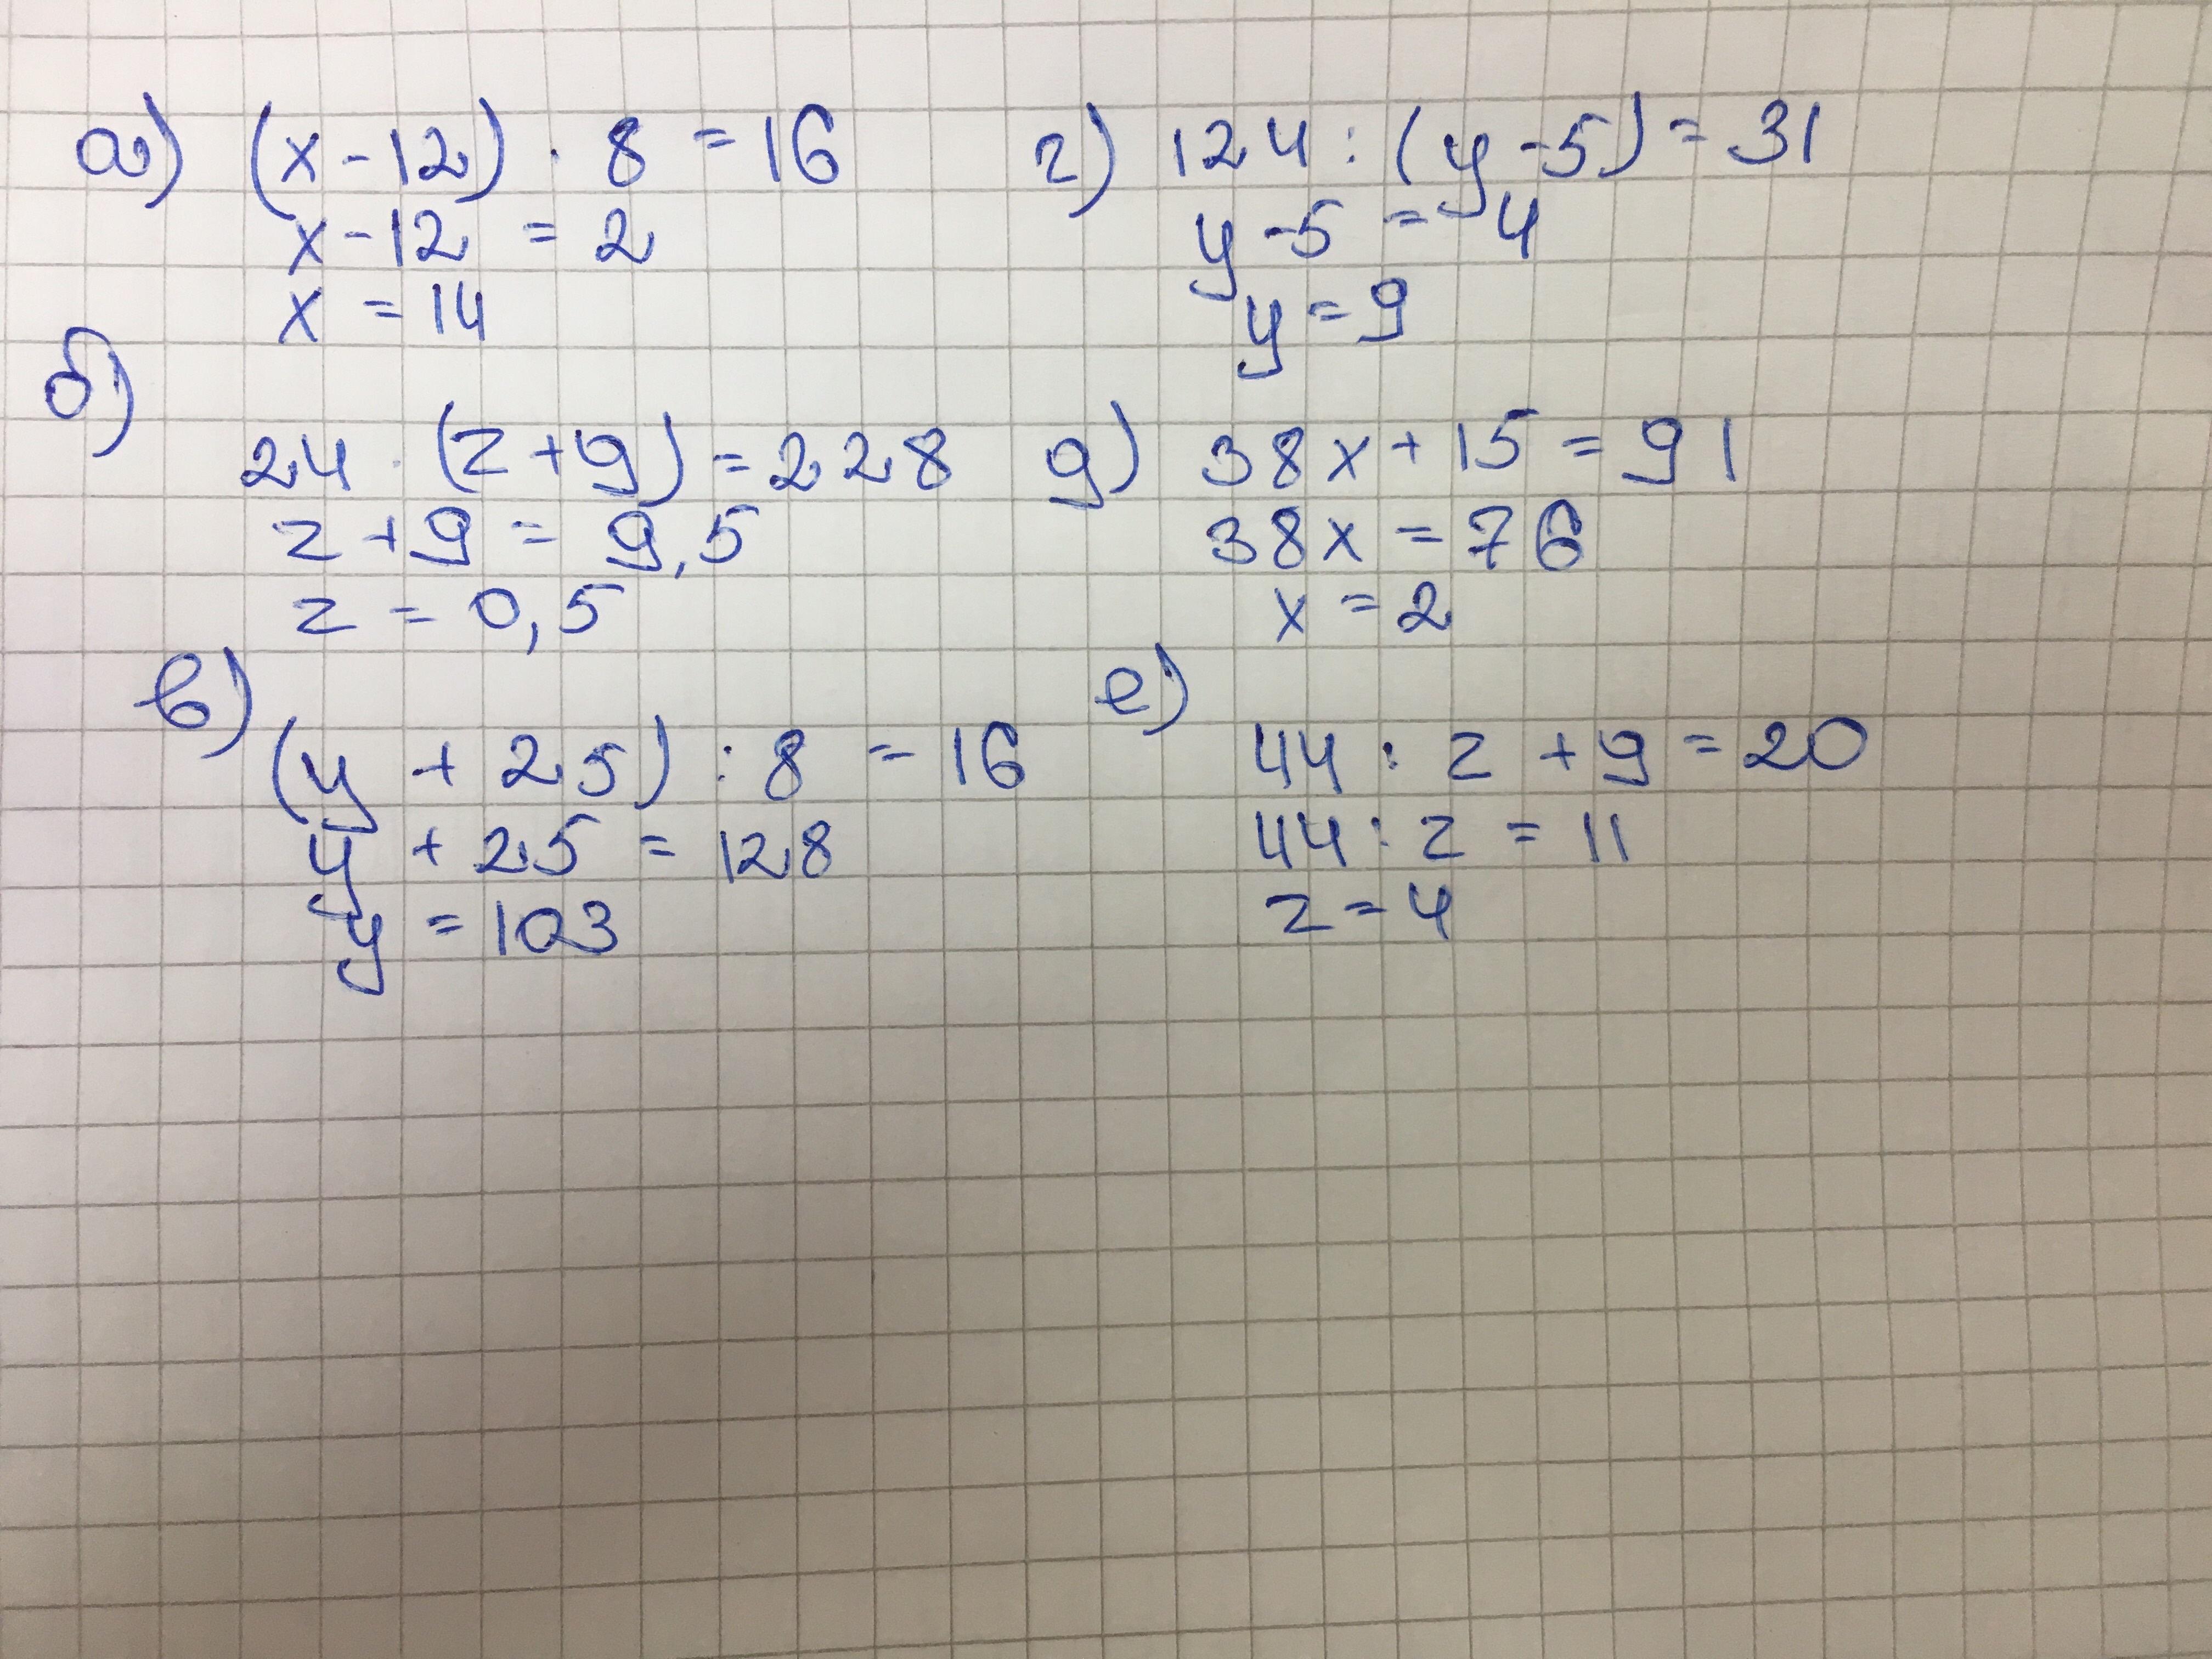 а) (x-12) · 8 = 16
x-12 = 2
x = 14
б)
24 · (z+9) = 228
z+9 = 9,5
z = 0,5
в)
(y + 25) : 8 = 16
y + 25 = 128
y = 103
г) 124 : (y-5) = 31
y-5 = 4
y = 9
g) 38x + 15 = 91
38x = 76
x = 2
е)
44 : z + 9 = 20
44 : z = 11
z = 4